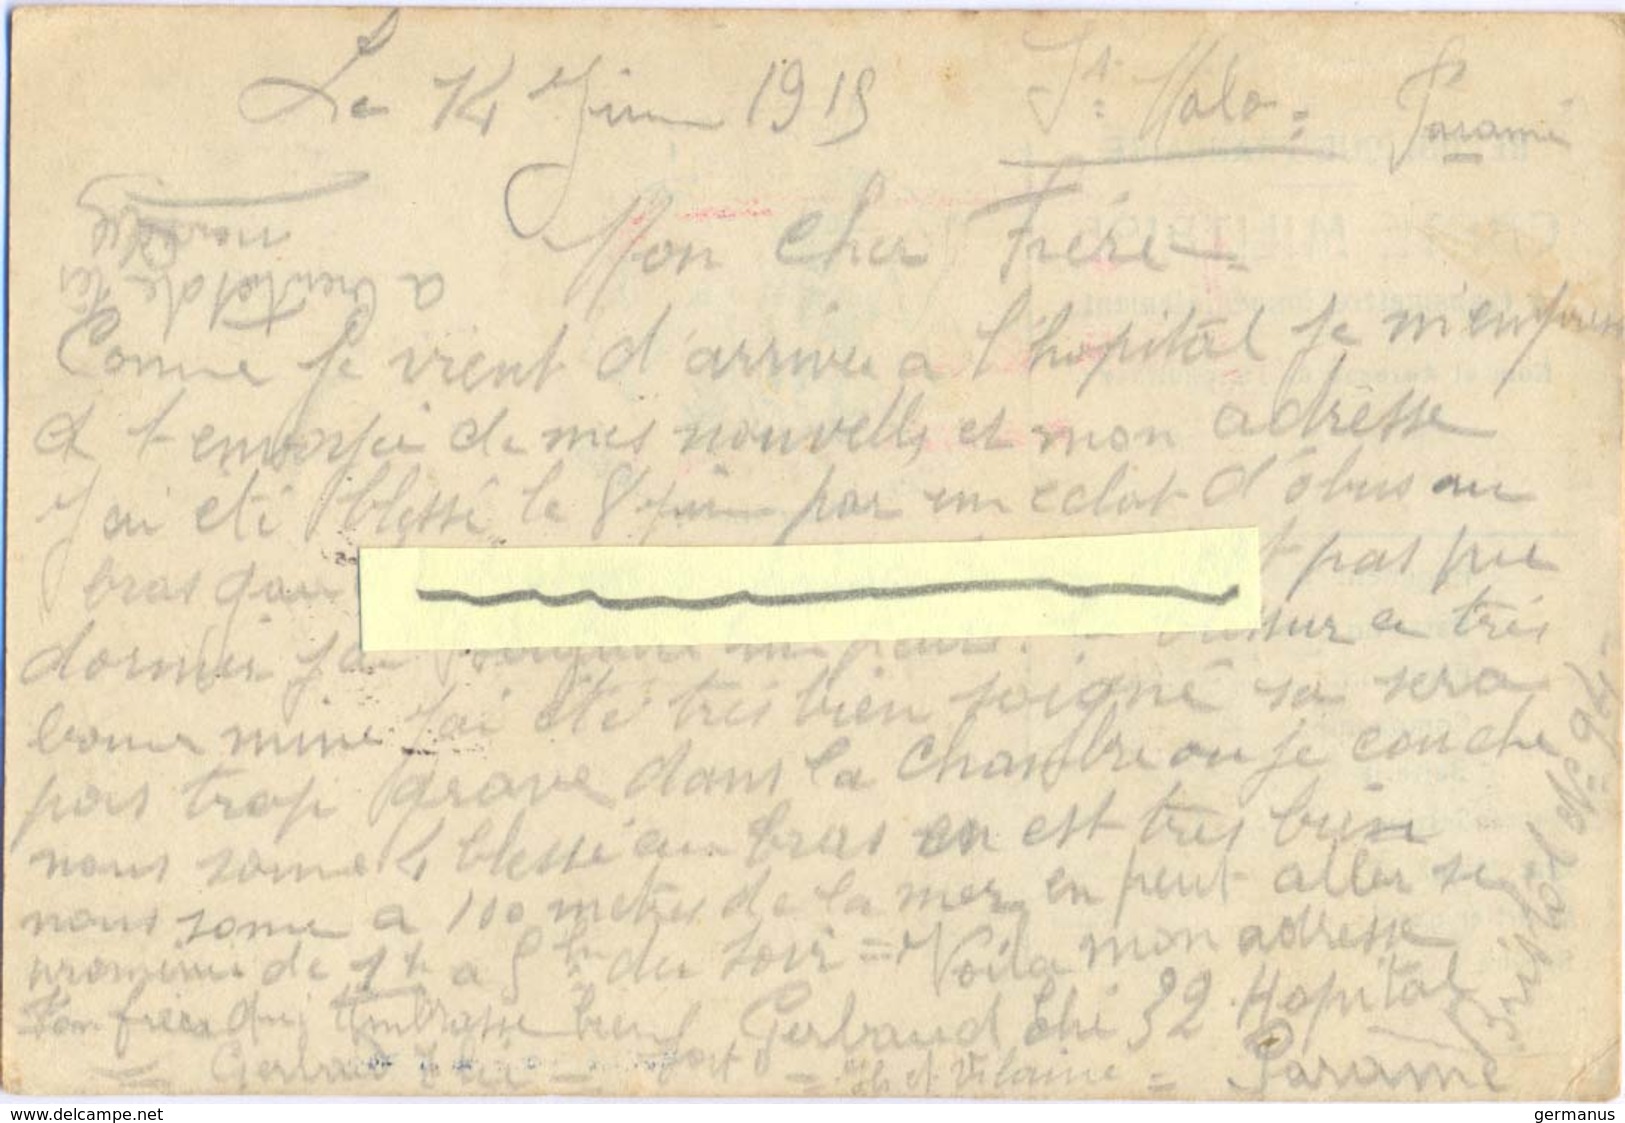 Le 14 Juin 1915 St Malo = Paramé
Mon Cher Frére =
a bientot de tes
nouvelle
Comme je vient d'arrivée a l'hopital je m'empresse
et t envoyée de mes nouvelle et mon adrèsse
J'ai été blessé le 8 juin par un eclat d'obus au
bras gau pas pu
dormir j'ai blessur a trés
bonne mine j'ai été trés bien soigné sa sera
pas trop grave dans la chambre ou je couche
nous some 4 blessé au bras on est tres bien
nous some a 100 metres de la mer en peut aller se
promener de 1h a 5h du soir = Voila mon adresse
Ton frère qui t'embrasse bien Gerbaud Elie 32 Hopital
Gerbaud Elie = = Ile et Vilaine = Paramé
Bristol No 94
www.delcampe.net
germanus